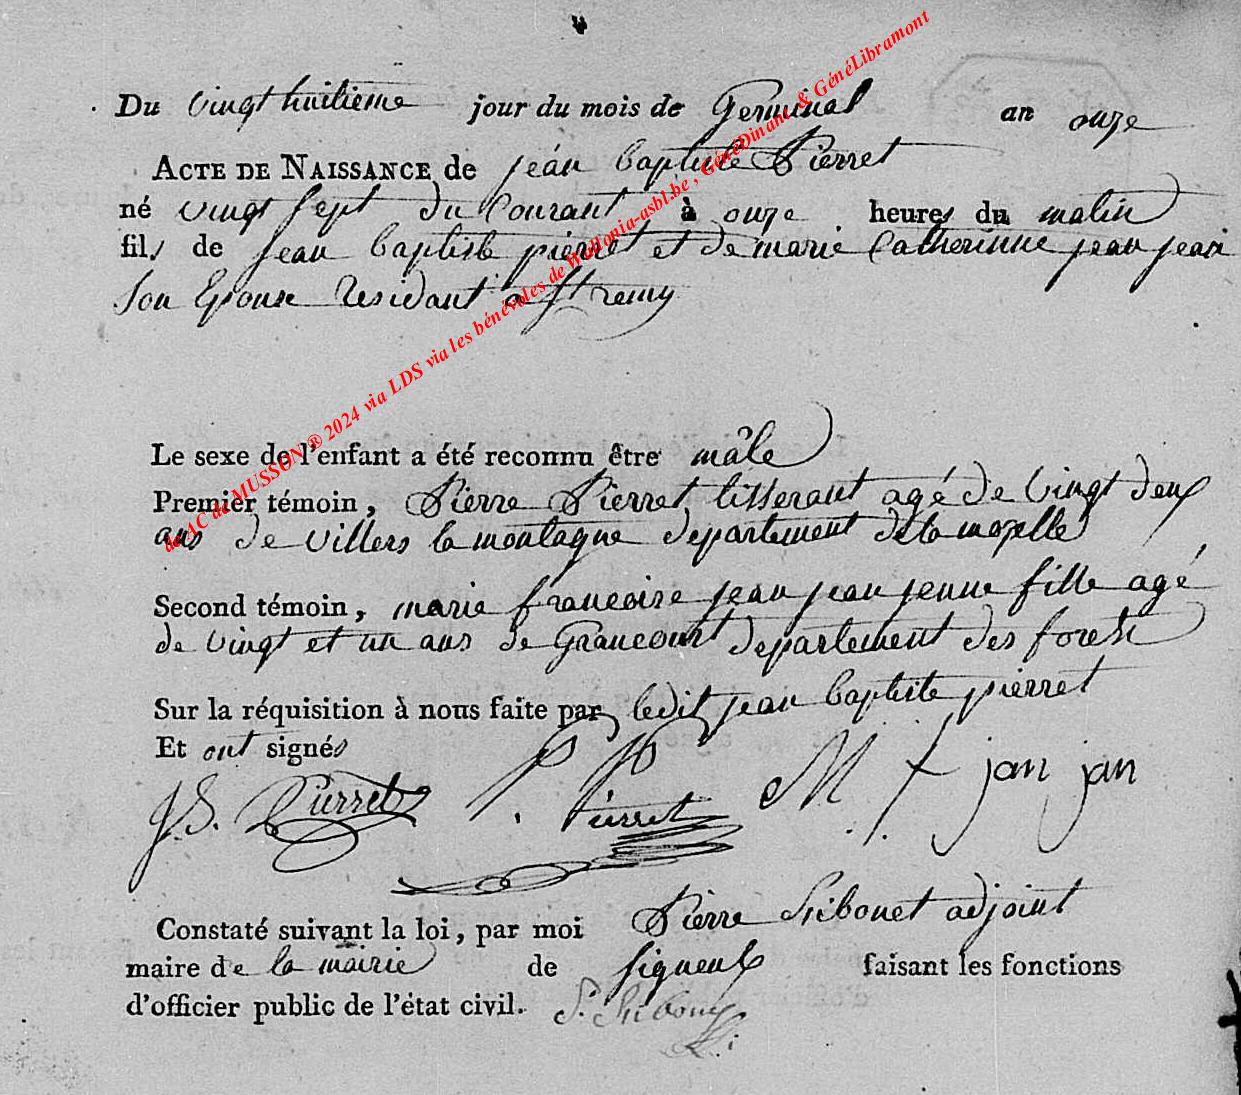 Du vingt huitieme jour du mois de Germinal an onze
ACTE DE NAISSANCE de jean baptiste Pierret
né vingt sept du Courant à onze heures du matin
fils de jean baptiste pierret et de marie Catherinne jean jean
son Epouse residant a st remy
de AC de MUSSON ® 2024 via LDS via les bénévoles de Wallonia-asbl.be, GénéDinant & GénéLibramont
Le sexe de l'enfant a été reconnu être mâle
Premier témoin, Pierre Pierret tisserant agé de vingt deux
ans de villers la montagne departement de la mozelle
Second témoin, marie francoise jean jean jeune fille agé
de vingt et un ans de Grancourt departement des forets
Sur la réquisition à nous faite par ledit jean baptiste pierret
Et ont signés
J. B. Pierret P. Pierret M f jan jan
Constaté suivant la loi, par moi Pierre adjoint
maire de la mairie de signeulx faisant les fonctions
d'officier public de l'état civil. P.